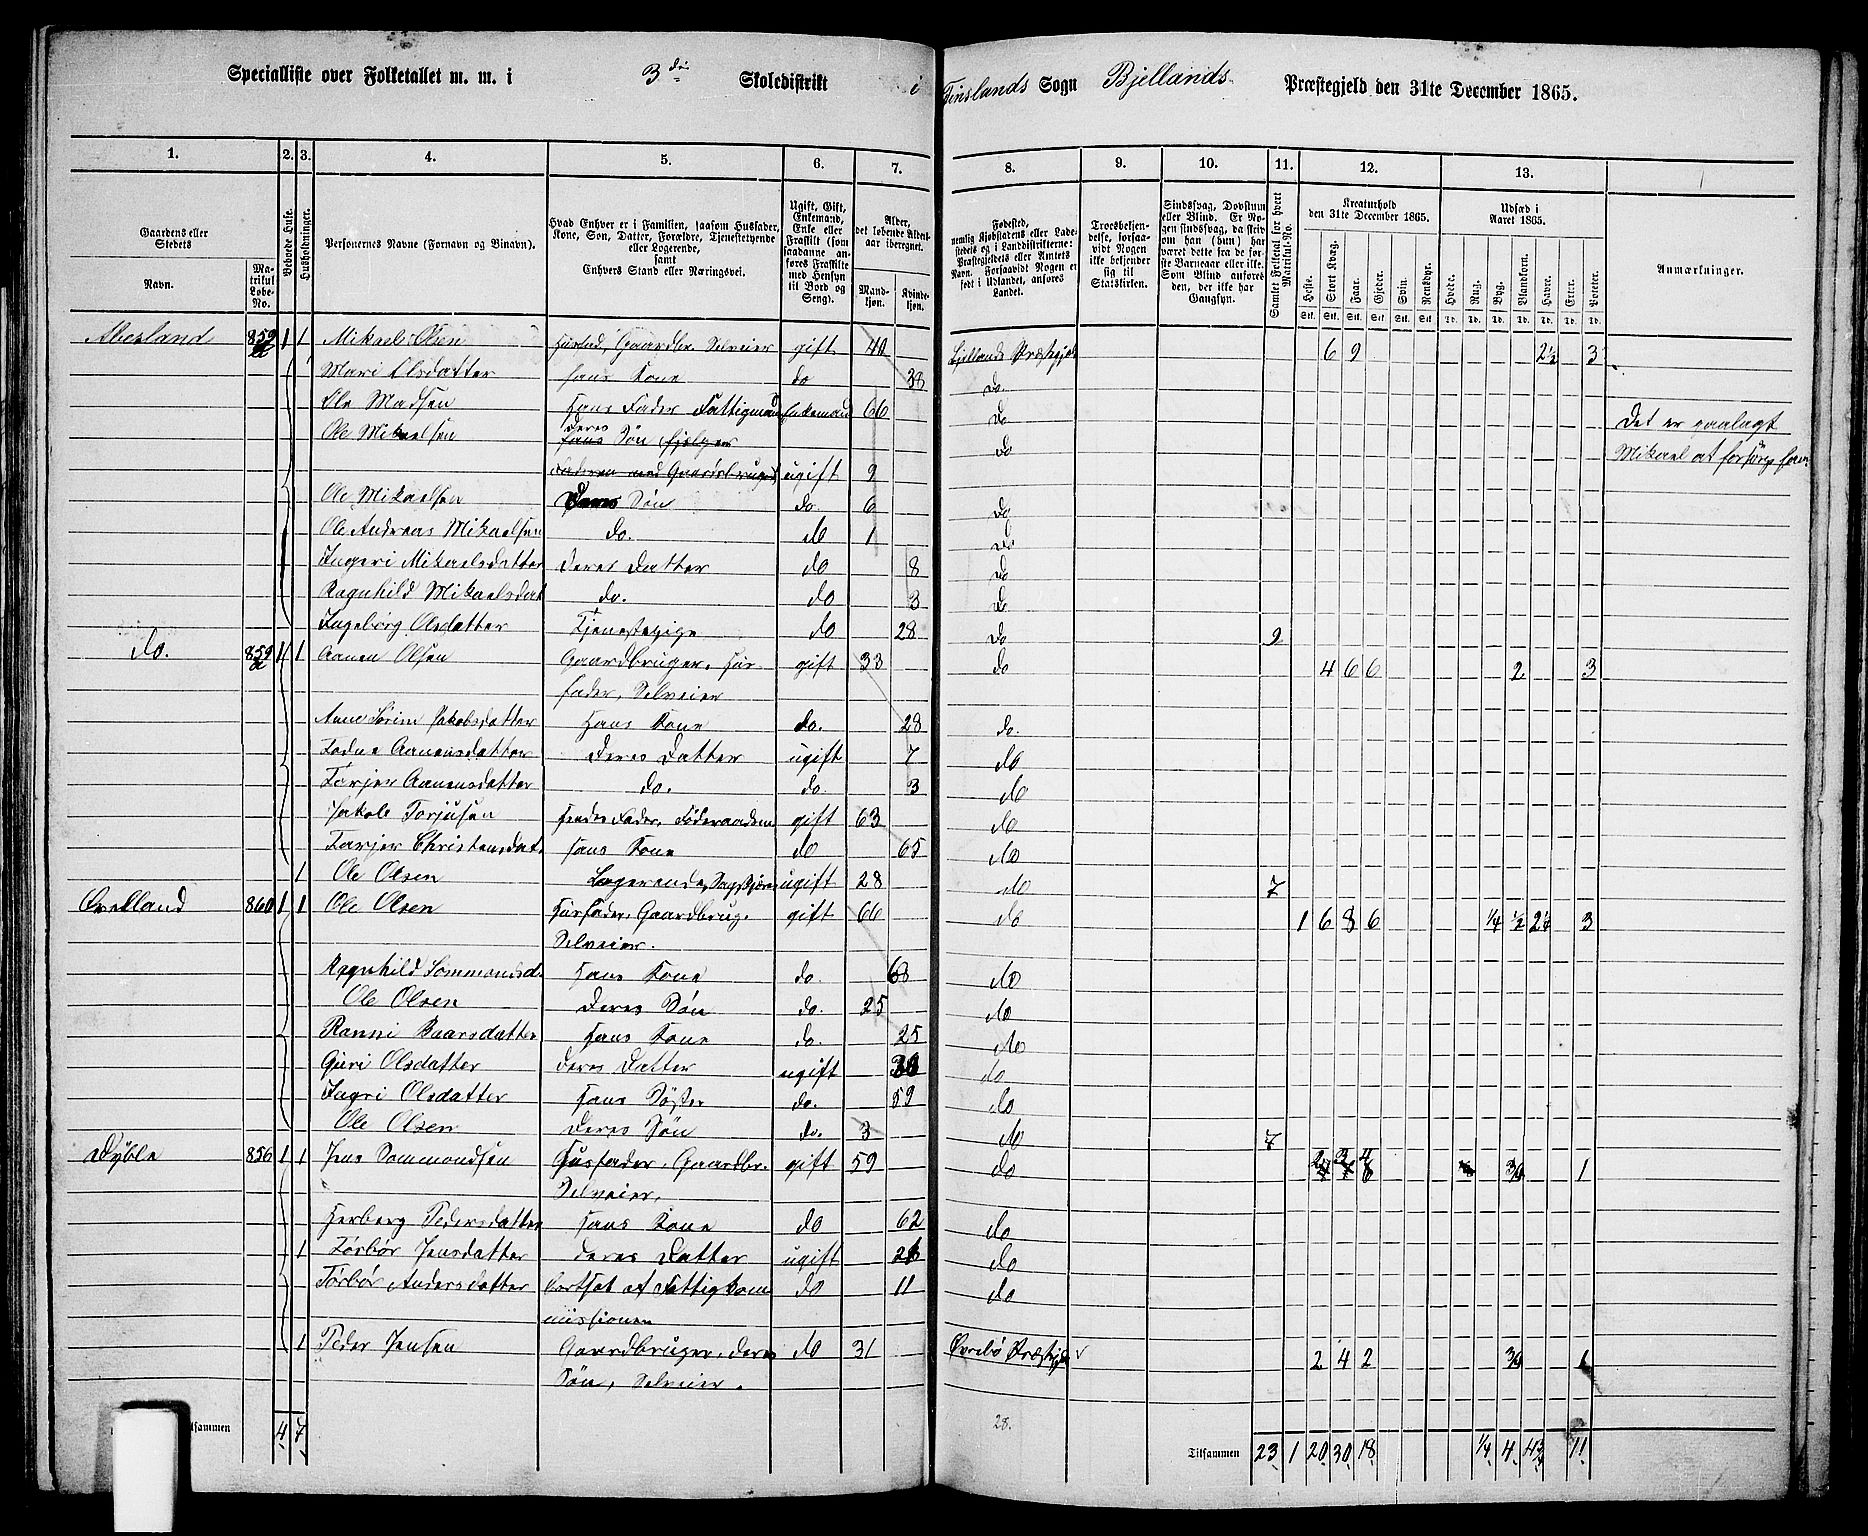 Specialliste over Folketallet m. m. i 3die Skoledistrikt i Finslands Sogn Bjellands Præstegjeld den 31te December 1865.
1. 2. 3. 4. 5. 6. 7. 8. 9. 10. 11. 12. 13.
Gaardens eller Stedets
Navn. Matrikul Løbe-No.
Beboede Huse.
Husholdninger.
Personernes Navne (Fornavn og Binavn).
Hvad Enhver er i Familien, saasom Husfader, Kone, Søn, Datter, Forældre, Tjenestetyende eller Logerende, samt Enhvers Stand eller Næringsvei.
Ugift, Gift, Enkemand, Enke eller Fraskilt (som saadanne anføres Fraskilte med Hensyn til Bord og Seng).
Alder, det løbende Alders-aar iberegnet.
Mandkjøn. Kvindekjøn.
Fødested, nemlig Kjøbstadens eller Ladestedets og i Landdistrikterne: Præstegjeldets eller Amtets Navn. Forsaavidt Nogen er født i Udlandet, anføres Landet.
Troesbekjendelse, forsaavidt Nogen ikke bekjender sig til Statskirken.
Sindssvag, Døvstum eller Blind. Er Nogen sindssvag, da skriv om han (hun) har været dette fra de første Barneaar eller ikke. Som Blind anføres den, der ikke har Gangsyn.
Samlet Folketal for hvert Matrikul-No.
Kreaturhold den 31te December 1865.
Heste. Stort Kvæg. Faar. Gjeder. Svin. Rensdyr.
Udsæd i Aaret 1865.
Hvede. Rug. Byg. Blandkorn. Havre. Erter. Poteter.
Anmærkninger.
Abesland 859 1 1 Mikael Olsen Husfad, Gaardbr. Selveier gift 40 Bjellands Præstegjeld 6 9 2½ 3
Mari Olsdatter Hans Kone do 38 Do.
Ole Madsen Hans Fader Fattigmand Enkemand 66 Do Det er paalagt
Ole Mikaelsen Deres Søn Do Mikael at forsørge ham
ugift 9
Ole Mikaelsen Deres Søn do. 6 Do
Ole Andreas Mikaelsen do. do 1 Do
Ingeri Mikaelsdatter Deres Datter do 8 Do
Ragnhild Mikaelsdat do. do 3 Do
Ingeborg Olsdatter Tjenestepige do 28 Do 9
do. 859 1 1 Aanen Olsen Gaardbruger, Husfader, Selveier gift 33 do 4 6 6 2 3
Anne Sørine Jakobsdatter Hans Kone do. 28 do.
Aanensdatter Deres Datter ugift 7 do
Torjer Aanensdatter do. do. 3 do
Jakob Torjusen Hendes Fader, Føderaadsm gift 63 do
Torjer Christensdat. Hans Kone do 65 do
1 Ole Olsen Logerende, ugift 28 do 7
Qvelland 860 1 1 Ole Olsen Husfader, Gaardbrug. gift 66 do 1 6 8 6 ¼ ½ 2¼ 3
Selveier.
Ragnhild Sommonsd. Hans Kone do. 68 do
Ole Olsen Deres Søn do. 25 do
Ranni Baarsdatter Hans Kone do. 25 do
Guri Olsdatter Deres Datter ugift 30 do
Ingri Olsdatter Hans Søster do. 59 do
Ole Olsen Deres Søn do. 3 do 7
Dyble 856 1 1 Jens Sommondsen Husfader, Gaardbr. gift 59 do 2 3 4 ¾ 1
Selveier,
Herborg Pedersdatter Hans Kone do 62 do
1 Torbør Jensdatter Deres Datter ugift 26 do
Torbør Andersdatter Bortsat af Fattigkom do 11 do
missionen
1 Peder Jensen Gaardbruger, deres do 31 Øvrebø Præstegjeld 2 4 2 ¾ 1
Søn, Selveier.
28.
Tilsammen 4 7 Tilsammen 23 1 20 30 18 ¼ 4 4¾ 11